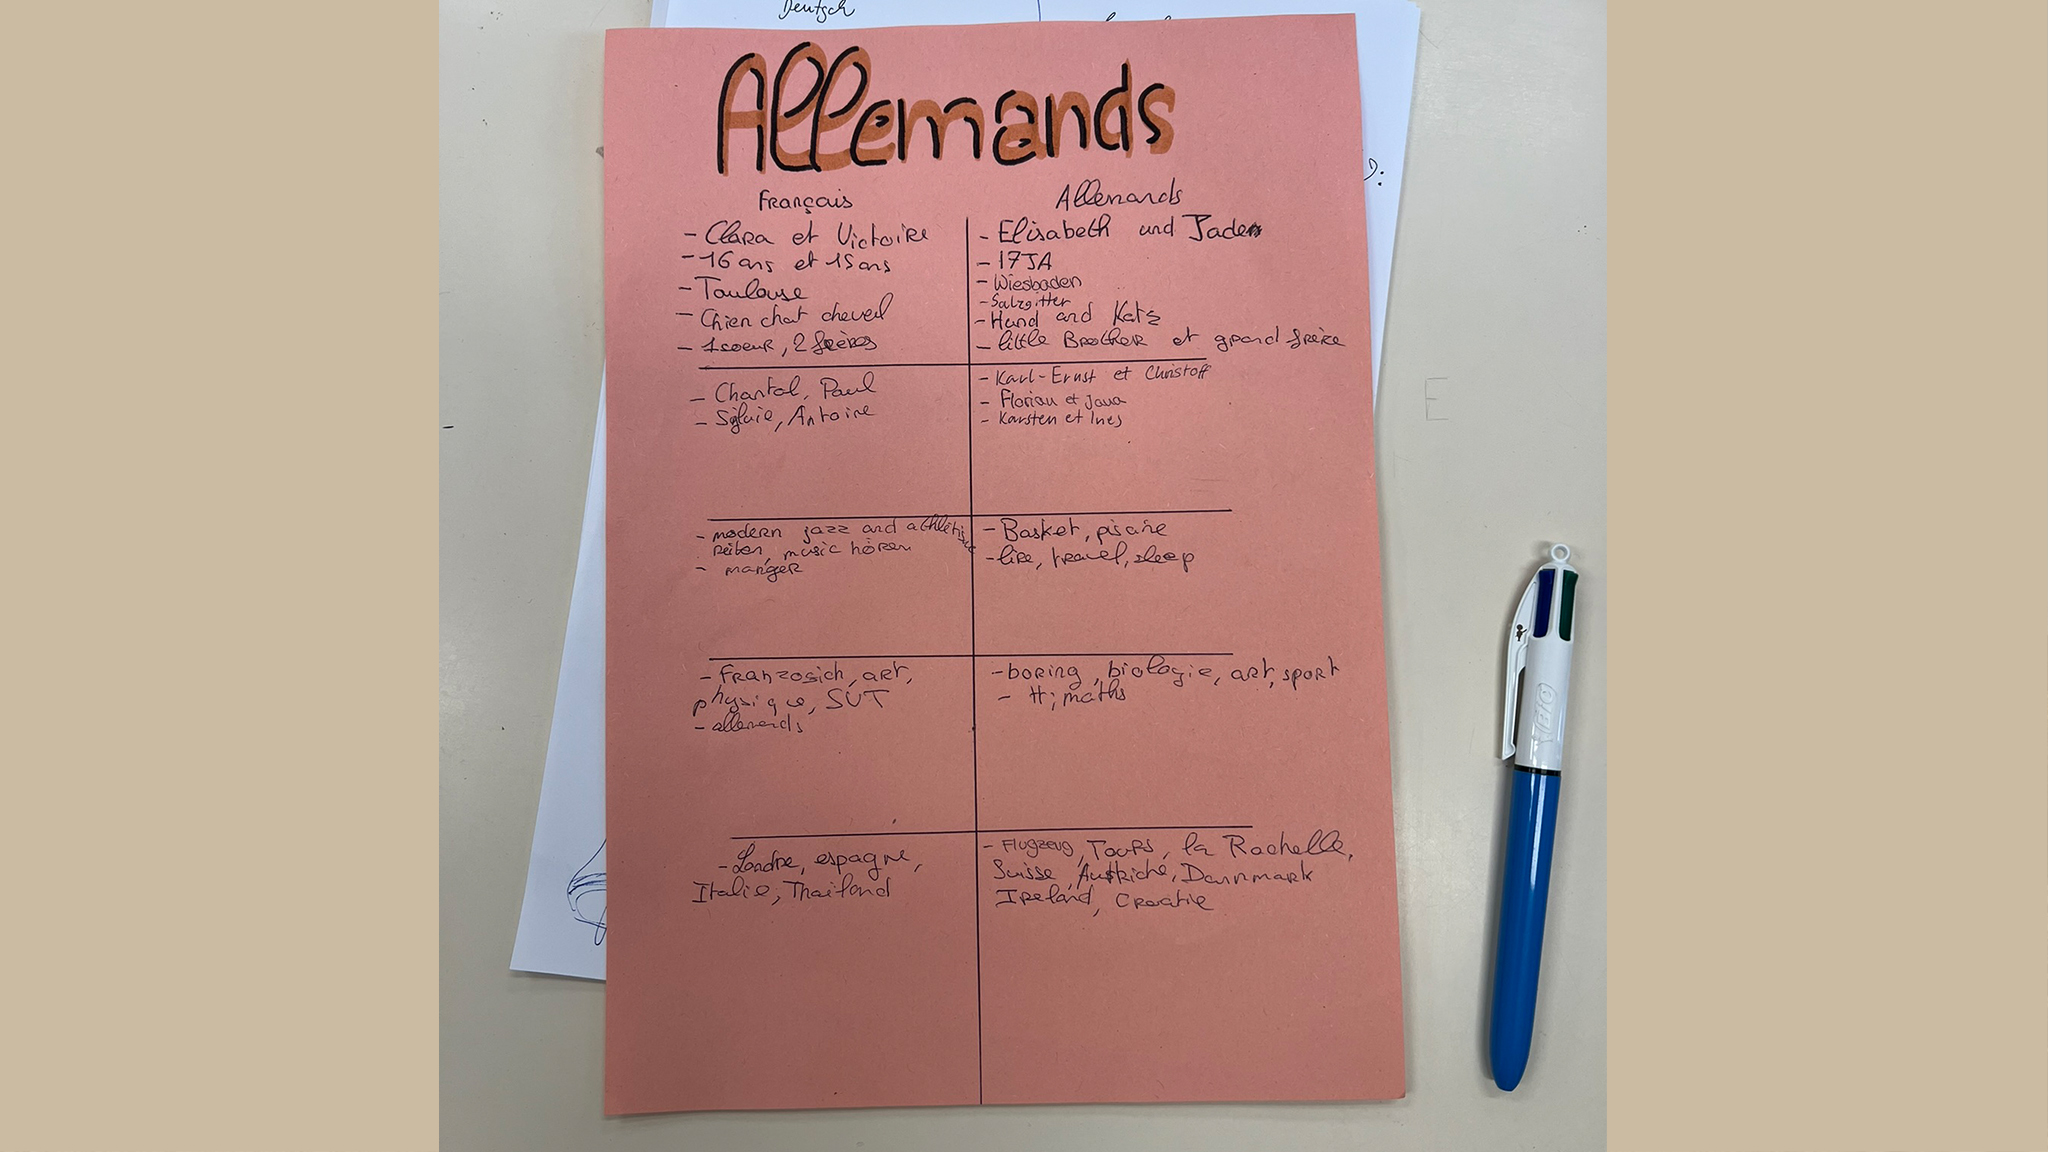 Deutsch
Allemands
Français
- Clara et Victoire
- 16 ans et 15 ans
- Toulouse
- Chien chat cheval
- 1 soeur, 2 frères
Allemands
- Elisabeth und Jaden
- 17JA
- Wiesbaden
- Salzgitter
- Hund and Katz
- little Brother et grand frère
- Chantal, Paul
- Sylvie, Antoine
- Karl-Ernst et Christoff
- Florian et Jana
- Karsten et Ines
- modern jazz and athlétisme
reiten, music hören
- manger
- Basket, piscine
- lire, travel, sleep
- Franzosich, art,
physique, SVT
- allemands
- boring, biologie, art, sport
- H; maths
- Londre, espagne,
Italie, Thaïland
- Flugzeug, Tours, la Rochelle,
Suisse, Autriche, Dannmark
Ireland, Croatie
BIC